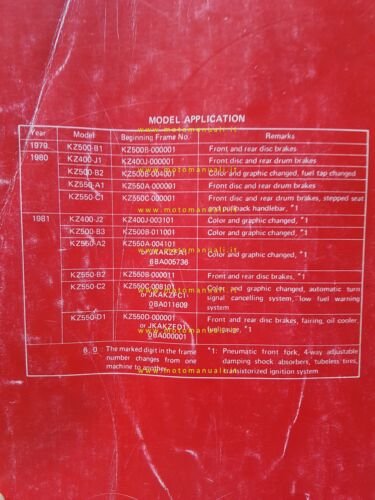 www.motomanuali.it
MODEL APPLICATION
Year Model Beginning Frame No. Remarks
1979 KZ500-B1 KZ500B-000001 Front and rear disc brakes
1980 KZ400-J1 KZ400J-000001 Front disc and rear drum brakes
KZ500-B2 KZ500B-004001 Color and graphic changed, fuel tap changed
KZ550-A1 KZ550A-000001 Front disc and rear drum brakes
KZ550-C1 KZ550C-000001 Front disc and rear drum brakes, stepped seat
and pullback handlebar, *1
www.motomanuali.it
1981 KZ400-J2 KZ400J-003101 Color and graphic changed, *1
KZ500-B3 KZ500B-011001 Color and graphic changed, *1
KZ550-A2 KZ550A-004101
or JKAKZFA1 Color and graphic changed, *1
www.motomanuali.it
BA005736
KZ550-B2 KZ550B-000011 Front and rear disc brakes, *1
KZ550-C2 KZ550C-008101 Color and graphic changed, automatic turn
or JKAKZFC1- signal cancelling system, low fuel warning
BA011609 system
www.motomanuali.it
KZ550-D1 KZ550D-000001 Front and rear disc brakes, fairing, oil cooler,
or JKAKZFD1- fuel gauge, *1
BA000001
www.motomanuali.it
: The marked digit in the frame
number changes from one
machine to another.
*1: Pneumatic front fork, 4-way adjustable
damping shock absorbers, tubeless tires,
transistorized ignition system
www.motomanuali.it